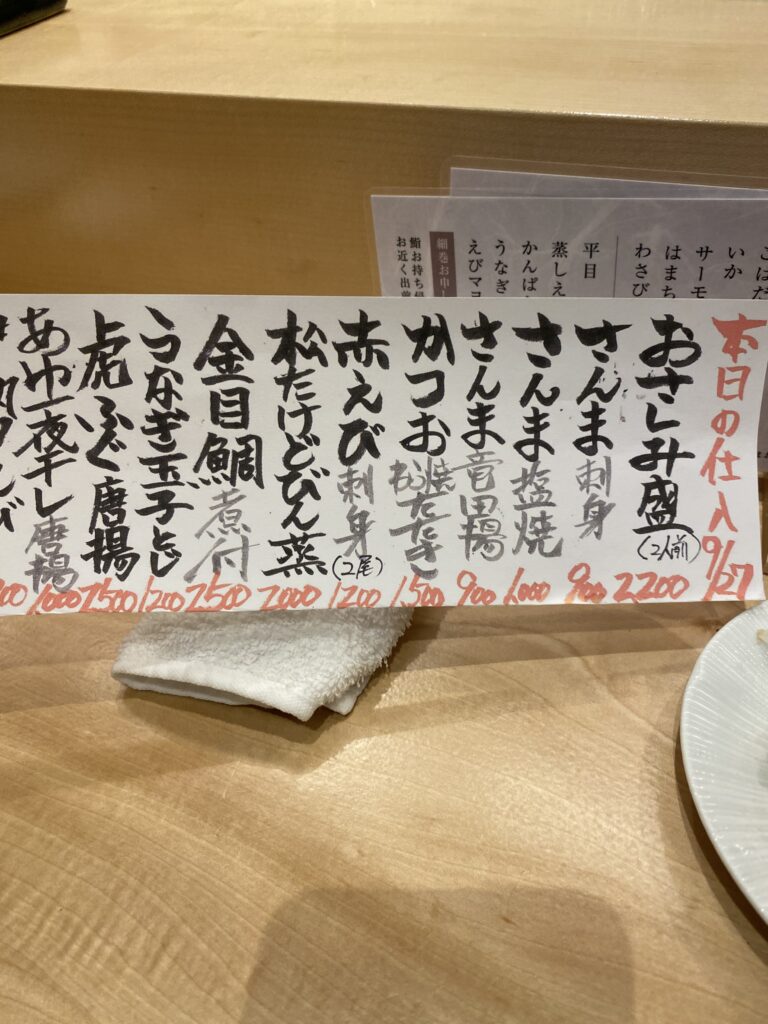 本日の仕入 9/27
おさしみ盛(2人前) 2200
さんま刺身 900
さんま塩焼 1,000
さんま竜田揚 900
かつお たたき 1,500
赤えび刺身(2尾) 1200
松たけどびん蒸 2000
金目鯛煮付 2500
うなぎ玉子とじ 1200
虎ふぐ唐揚 1,500
あゆ一夜干し唐揚 1,000
いか
サーモ
はまち
わさび
平目
蒸しえ
かんぱ
うなぎ
えびマヨ
鮨お持ち
お近く出前